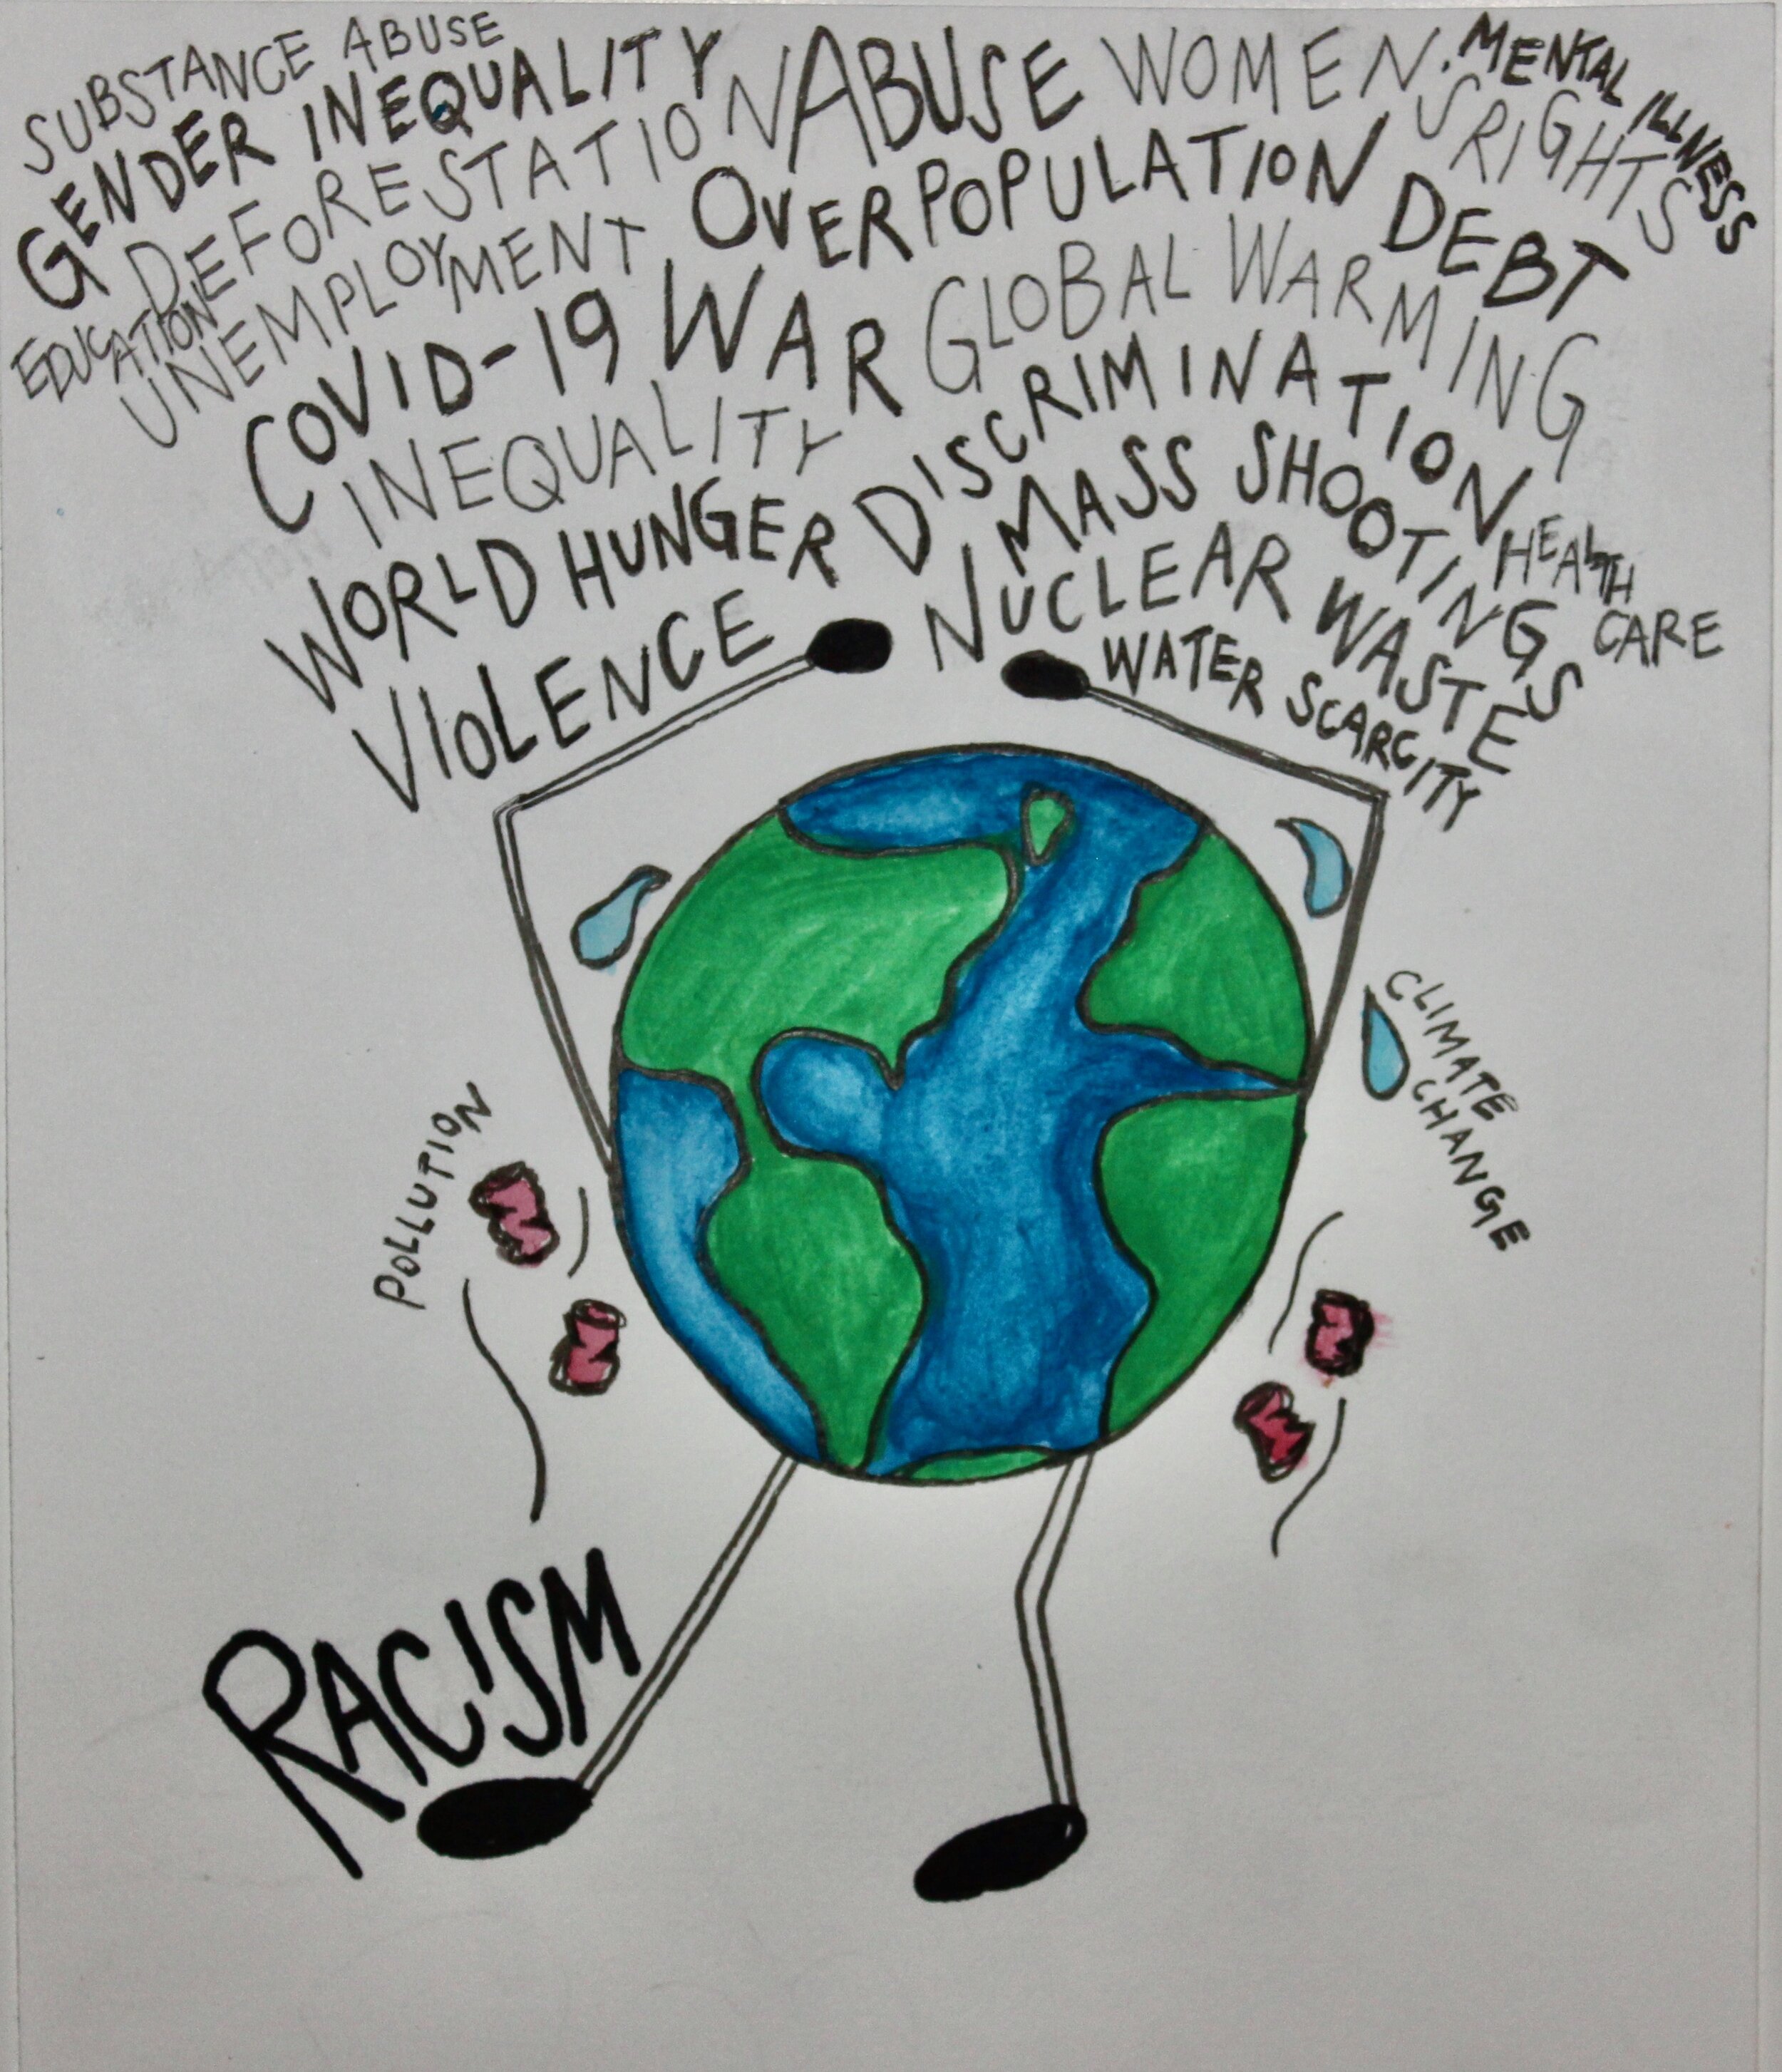 SUBSTANCE ABUSE
GENDER INEQUALITY
DEFORESTATION
ABUSE
WOMEN'S RIGHTS
MENTAL ILLNESS
EDUCATION
UNEMPLOYMENT
OVERPOPULATION
DEBT
COVID-19
WAR
GLOBAL WARMING
INEQUALITY
DISCRIMINATION
WORLD HUNGER
MASS SHOOTINGS
HEALTH
CARE
VIOLENCE
NUCLEAR WASTE
WATER SCARCITY
CLIMATE
CHANGE
POLLUTION
RACISM